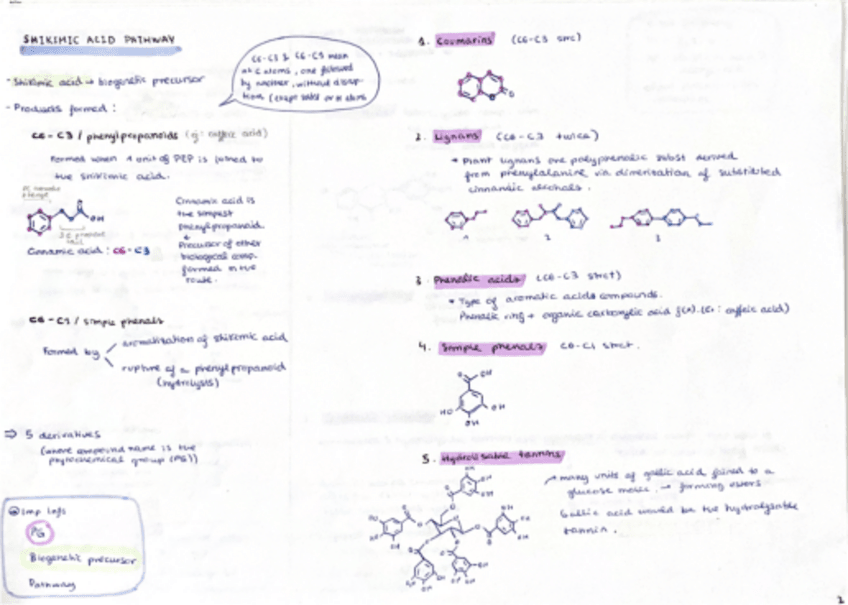 SHIKIMIC ACID PATHWAY
C6-C3 & C6-C1 mean
C atoms, one followed
by another, without
- Shikimic acid → biogenetic precursor
- Products formed:
C6 - C3 / phenylpropanoids (ej: caffeic acid)
Formed when 1 unit of PEP is joined to
the shikimic acid.
OH
Cinnamic acid: C6-C3
Cinnamic acid is
the simplest
phenylpropanoid
+
Precursor of other
biological comp.
formed in the
route.
C6 - C1 / simple phenols
Formed by
aromatization of shikimic acid
rupture of a phenylpropanoid
(hydrolysis)
⇒ 5 derivatives
(where compound name is the
phytochemical group (PG))
Imp info
PG
Biogenetic precursor
Pathway
1. Coumarins (C6-C3 struc)
O O
2. Lignans (C6-C3 twice)
• Plant lignans are polyphenolic subst derived
from phenylalanine via dimerization of substituted
cinnamic alcohols.
1 2 3
3. Phenolic acids (C6-C3 struct)
• Type of aromatic acids compounds.
Phenolic ring + organic carboxylic acid : caffeic acid)
4. Simple phenols C6-C1 struct.
O OH
HO OH
OH
5. Hydrolysable tannins
→ many units of gallic acid joined to a
glucose molec. → forming esters
Gallic acid would be the hydrolysable
tannin.
2